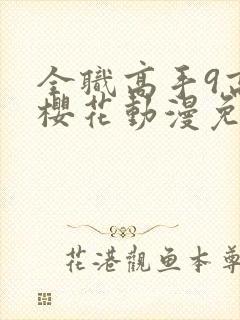 全職高手9
櫻花動漫免
花港觀鱼本尊